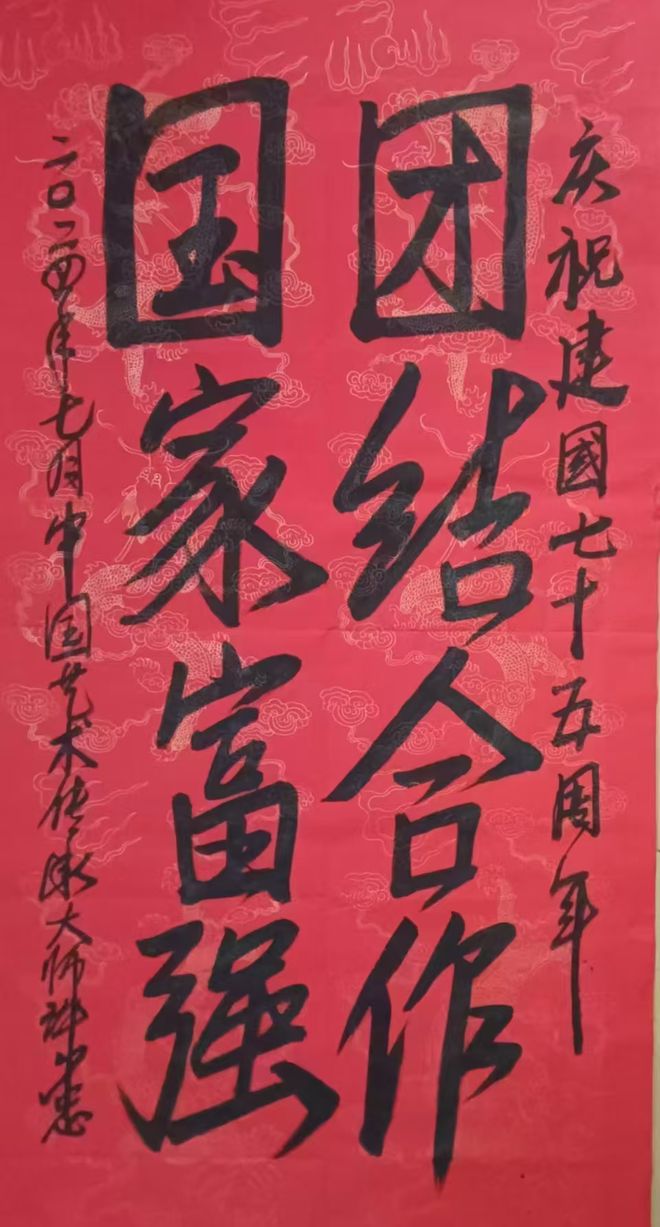 庆祝建國七十五周年
团结合作
国家富强
二〇二四年七月中国艺术传承大师